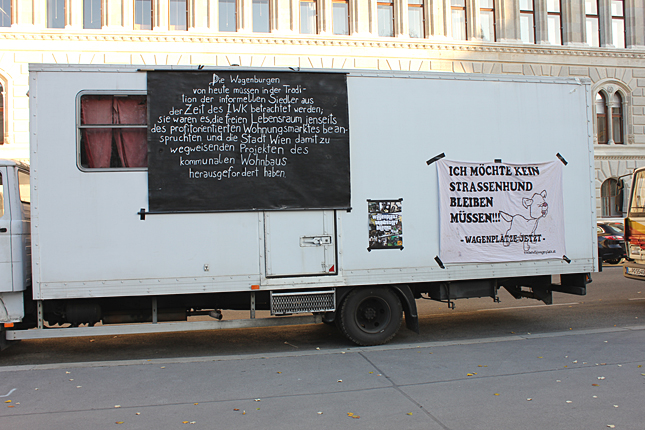 Die Wagenburgen
von heute müssen in der Tradi-
tion der informellen Siedler aus
der Zeit des 1.WK betrachtet werden;
sie waren es, die freien Lebensraum jenseits
des profitorientierten Wohnungsmarktes bean-
spruchten und die Stadt Wien damit zu
wegweisenden Projekten des
kommunalen Wohnbaus
herausgefordert haben.
ICH MÖCHTE KEIN
STRASSENHUND
BLEIBEN
MÜSSEN!!!
- WAGENPLÄTZE JETZT -